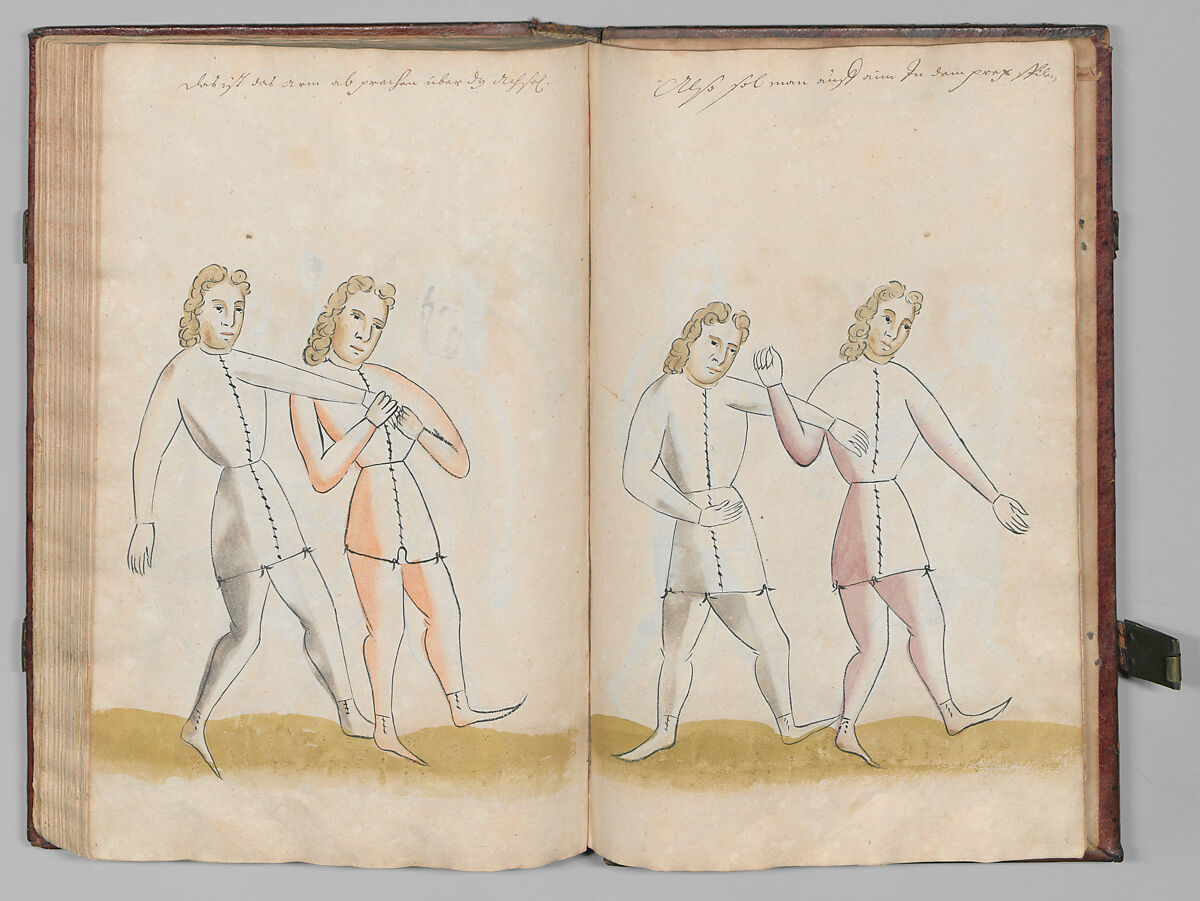 Das ist das arm ab prechen über dÿ Achssel.
Also sol man auß aim In dem prech